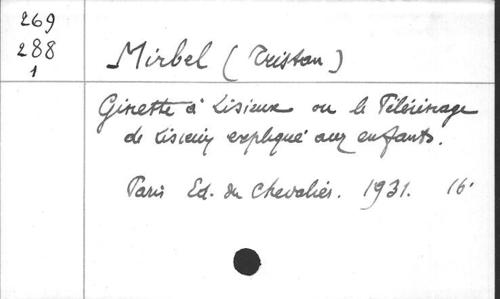 269
288
1
Mirbel (Tristan)
Ginette à Lisieux ou le Pélérinage
de Lisieux expliqué aux enfants.
Paris Ed. du Chevalier. 1931. 16°